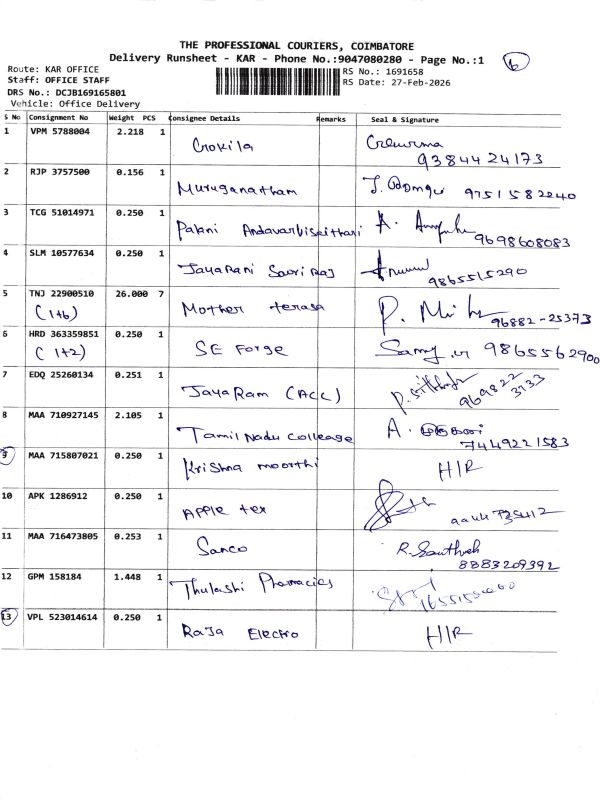 THE PROFESSIONAL COURIERS, COIMBATORE
Delivery Runsheet - KAR - Phone No.:9047080280 - Page No.:1
Route: KAR OFFICE
RS No.: 1691658
Staff: OFFICE STAFF
RS Date: 27-Feb-2026
DRS No.: DCJB169165801
Vehicle: Office Delivery
S No Consignment No Weight PCS Consignee Details Remarks Seal & Signature
1 VPM 5788004 2.218 1 Gokila
9384424173
2 RJP 3757500 0.156 1 Muruganatham 9751582240
3 TCG 51014971 0.250 1 Palani Andavar
9698608083
4 SLM 10577634 0.250 1 JayaRani Savri Raj
9865515290
5 TNJ 22900510 26.000 7 Mother terasa
(1+6) 96882-25373
6 HRD 363359851 0.250 1 SE Forge 9865562900
(1+2)
7 EDQ 25260134 0.251 1 JayaRam (ACC)
969822
3733
8 MAA 710927145 2.105 1 Tamil Nadu colleage A.
7449221583
9 MAA 715807021 0.250 1 Krishna moorthi H/R
10 APK 1286912 0.250 1 APPle tex
11 MAA 716473805 0.253 1 Sanco R. Santhosh
8883209392
12 GPM 158184 1.448 1 Thulashi Pharmacies
13 VPL 523014614 0.250 1 Raja Electro H/R